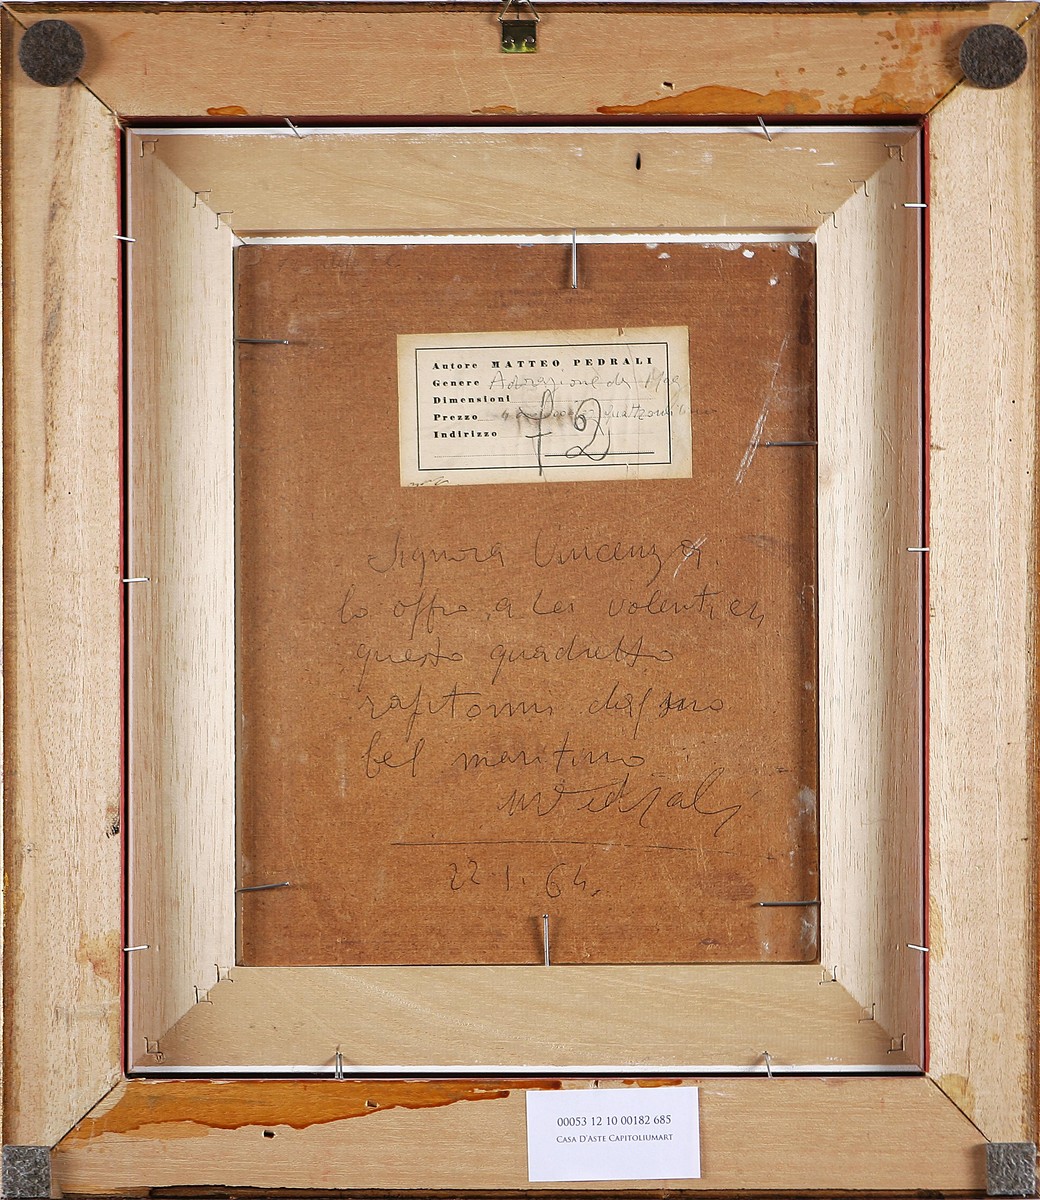 Autore MATTEO PEDRALI
Genere Adorazione dei Magi
Dimensioni
Prezzo
Indirizzo
72
Signora Vincenza
lo offro a Lei volentieri
questo quadretto
rapitomi dal suo
bel maritino
M Pedrali
22.1.64.
00053 12 10 00182 685
CASA D'ASTE CAPITOLIUMART